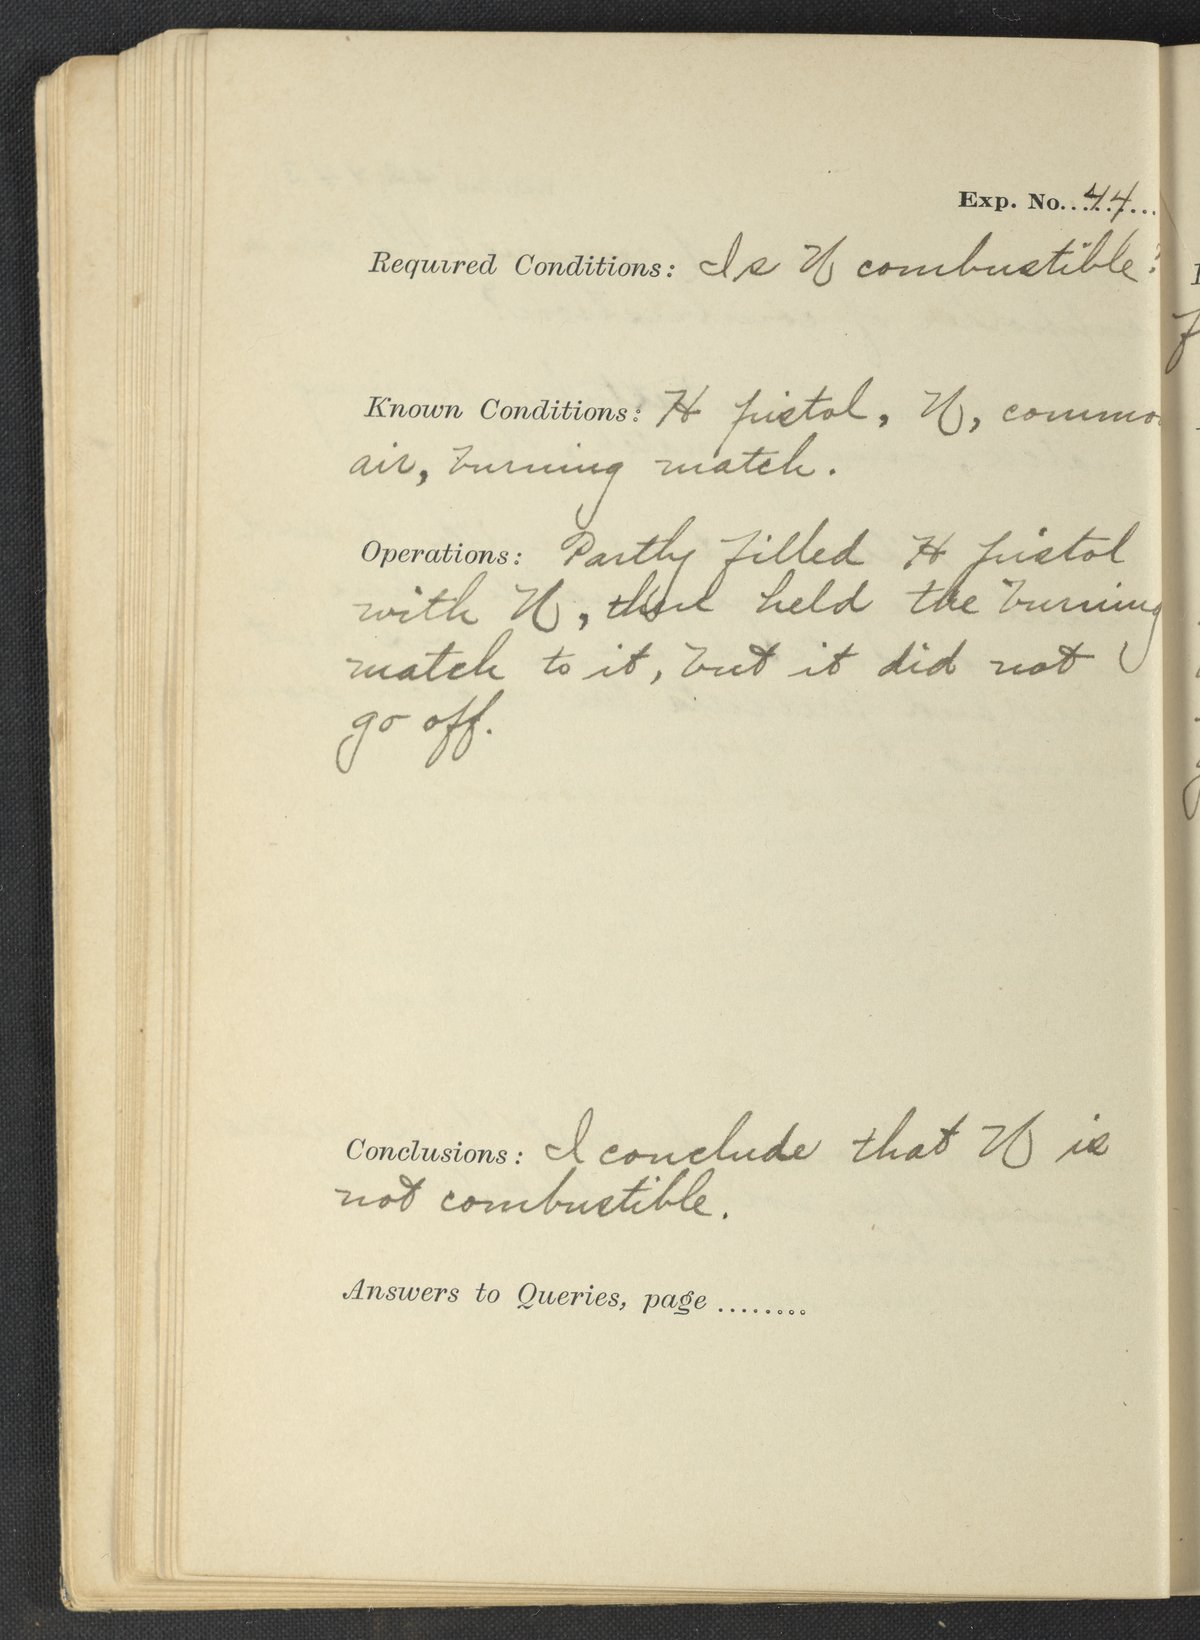 Exp. No. 44
Required Conditions: Is N combustible?
Known Conditions: H pistol, N, common
air, burning match.
Operations: Partly filled H pistol
with N, then held the burning
match to it, but it did not
go off.
Conclusions: I conclude that N is
not combustible.
Answers to Queries, page ........